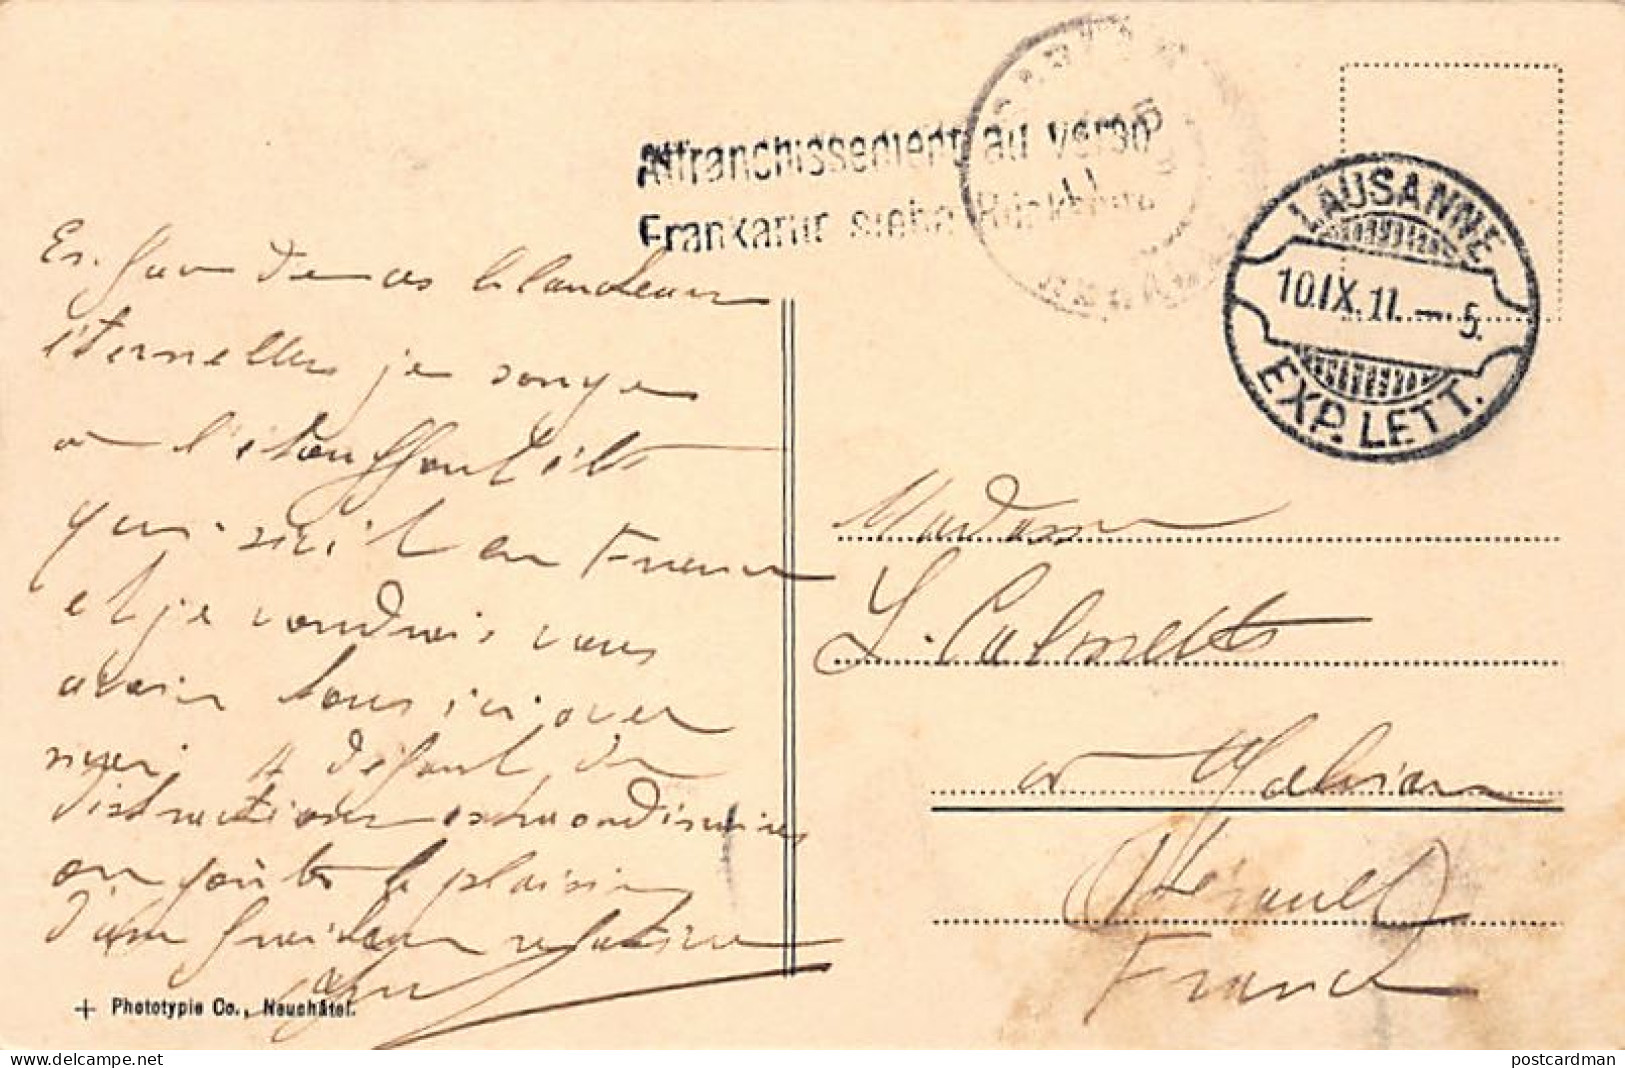 Affranchissement au verso
Frankatur siehe Rückseite
LAUSANNE
10.IX.11.—5.
EXP. LETT.
En face de ces blancheurs
éternelles je songe
à l'étouffant été
qui sévit en France
et je voudrais vous
avoir tous ici
A défaut de
distractions extraordinaires
on goûte le plaisir
d'une fraîcheur relative
Madame
L. Calmette
à
Hérault
France
+ Phototypie Co., Neuchâtel.
postcardman